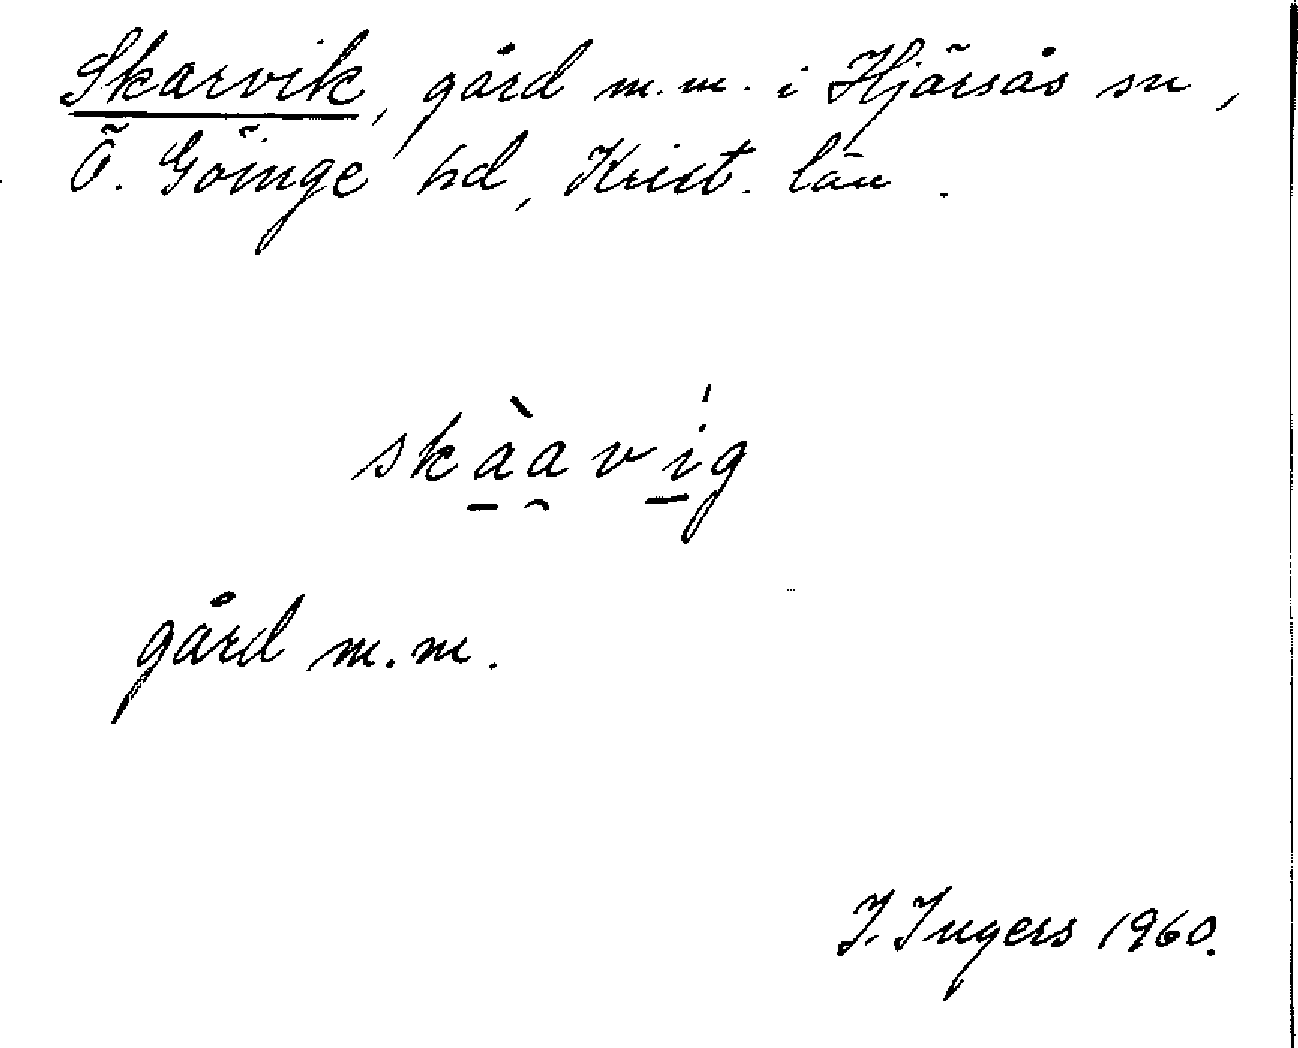 Skarvik, gård m.m. i Hjärsås sn,
Ö. Göinge hd, Krist. län.
skà̱a̯ví̱g
gård m.m.
I. Ingers 1960.